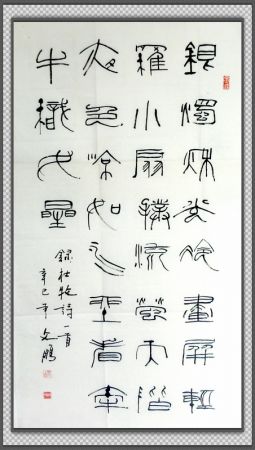 銀燭秋光冷畫屏輕
羅小扇撲流螢天階
夜色涼如水坐看牽
牛織女星
錄杜牧詩一首
辛巳年文鵬